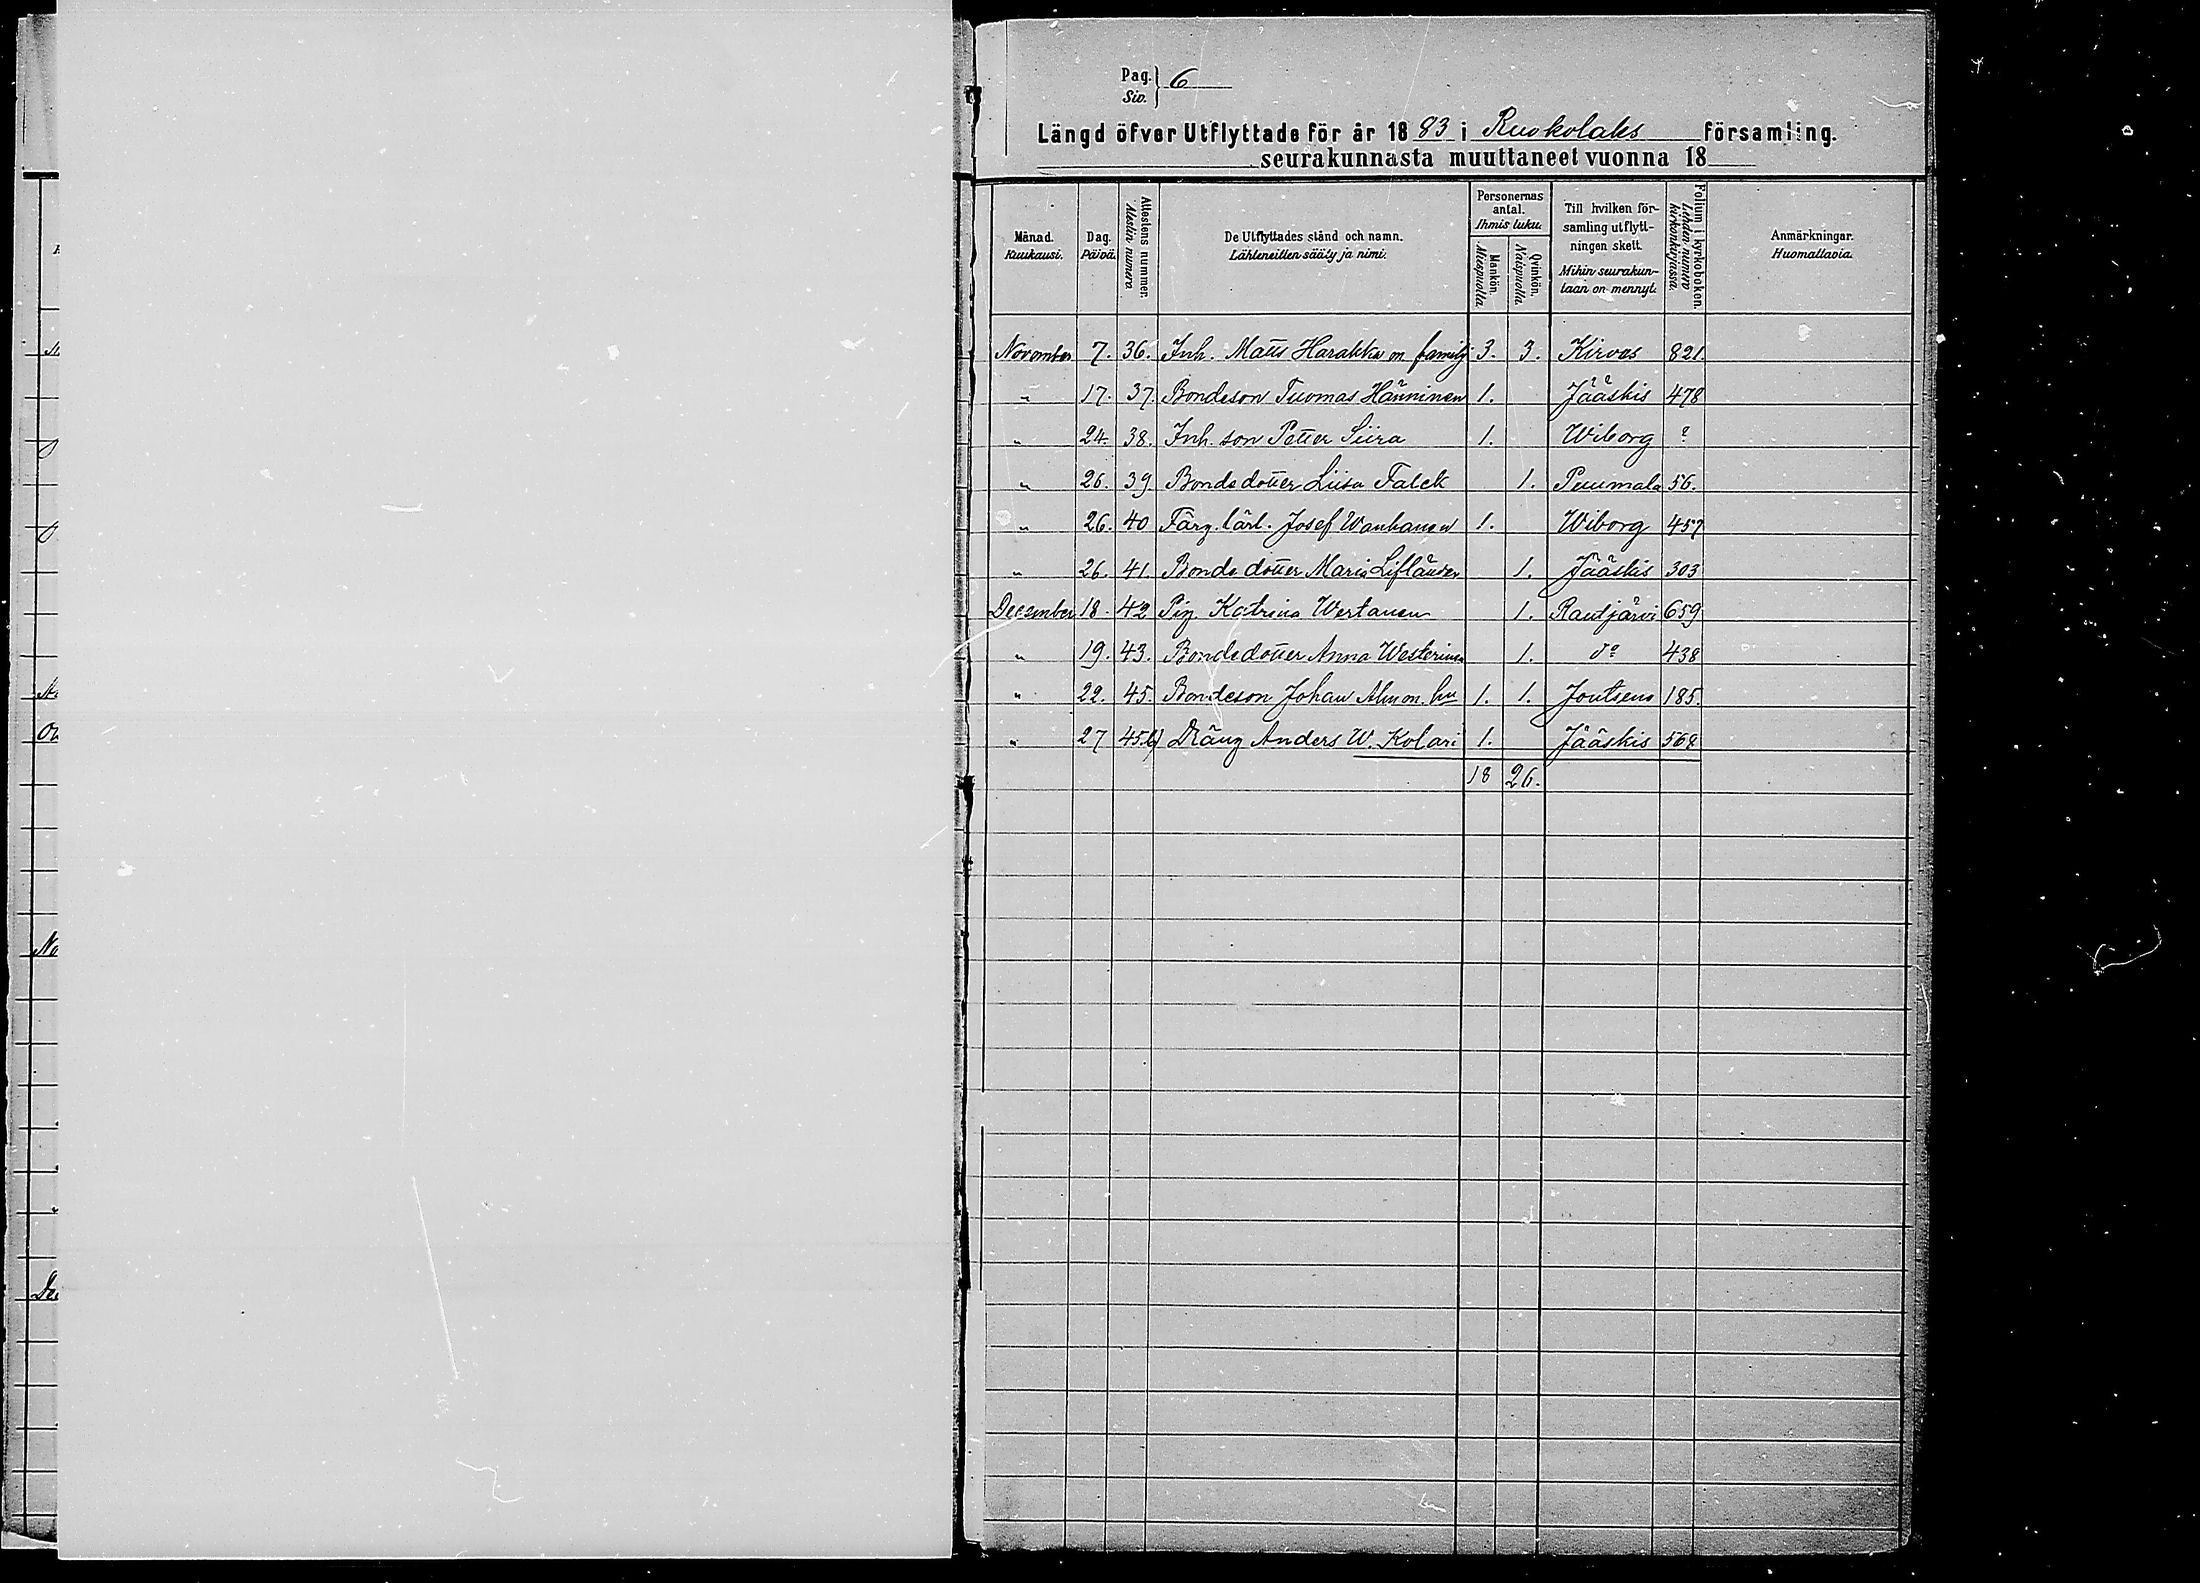 Pag. 6
Siv.
Längd öfver Utflyttade för år 1883 i Ruokolaks församling.
seurakunnasta muuttaneet vuonna 18
Månad. Kuukausi.
Dag. Päivä.
Attestens nummer. Alestin numero
De Utflyttades stånd och namn.
Lähteneitten sääty ja nimi.
Personernas antal. Ihmis luku.
Mankön. Miespuolta.
Qvinkön. Naispuolta.
Till hvilken församling utflyttningen skett.
Mihin seurakuntaan on mennyt.
Folium i kyrkoboken. Lehden numero kirkonkirjassa.
Anmärkningar. Huomattavia.
November 7. 36. Inh. Matts Harakka m familj 3. 3. Kirvus 821.
" 17. 37. Bondeson Tuomas Hänninen 1. Jääskis 478
" 24. 38. Inh. son Petter Siira 1. Wiborg ?
" 26. 39 Bondedotter Liisa Falck 1. Puumala 56.
" 26. 40 Färg. lärl. Josef Wanhanen 1. Wiborg 457
" 26. 41. Bondedotter Maria Lifländer 1. Jääskis 303
December 18. 42 Pig. Katrina Wertanen 1. Rautjärvi 659
" 19. 43. Bondedotter Anna Westerinen 1. do 438
" 22. 45. Bondeson Johan m. hu 1. 1. Joutseno 185.
" 27 45.b) Dräng Anders W. Kolari 1. Jääskis 568
18 26.